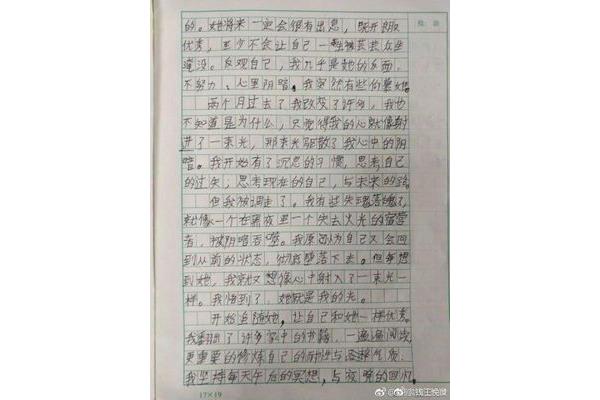 的。她将来一定会很有出息，既开朗
优秀，至少不会让自己一直被芸芸众生
淹没。反观自己，我几乎是她的反面，
不努力、心里阴暗。我突然有些仰慕她。
两个月过去了我改变了许多，我也
不知道是为什么，只觉得我的心就像射
进了一束光，那束光驱散了我心中的阴
暗。我开始有了沉思的习惯，思考自己
的过失，思考现在的自己，与未来的路。
但我被调走了。我有些失魂落魄了，
就像一个在黑夜里一个失去火光的宿营
者，被阴暗吞噬。我原以为自己又会回
到从前的状态，彻底堕落下去。但每想
到她，我就又想像心中射入了一束光一
样。我悟到了，她就是我的光。
开始追随她，让自己和她一样优秀。
我翻出了许多家中的书籍，一遍遍阅读，
更重要的修炼自己的
我坚持每天午后的冥想，与夜晚的回忆，
17×19